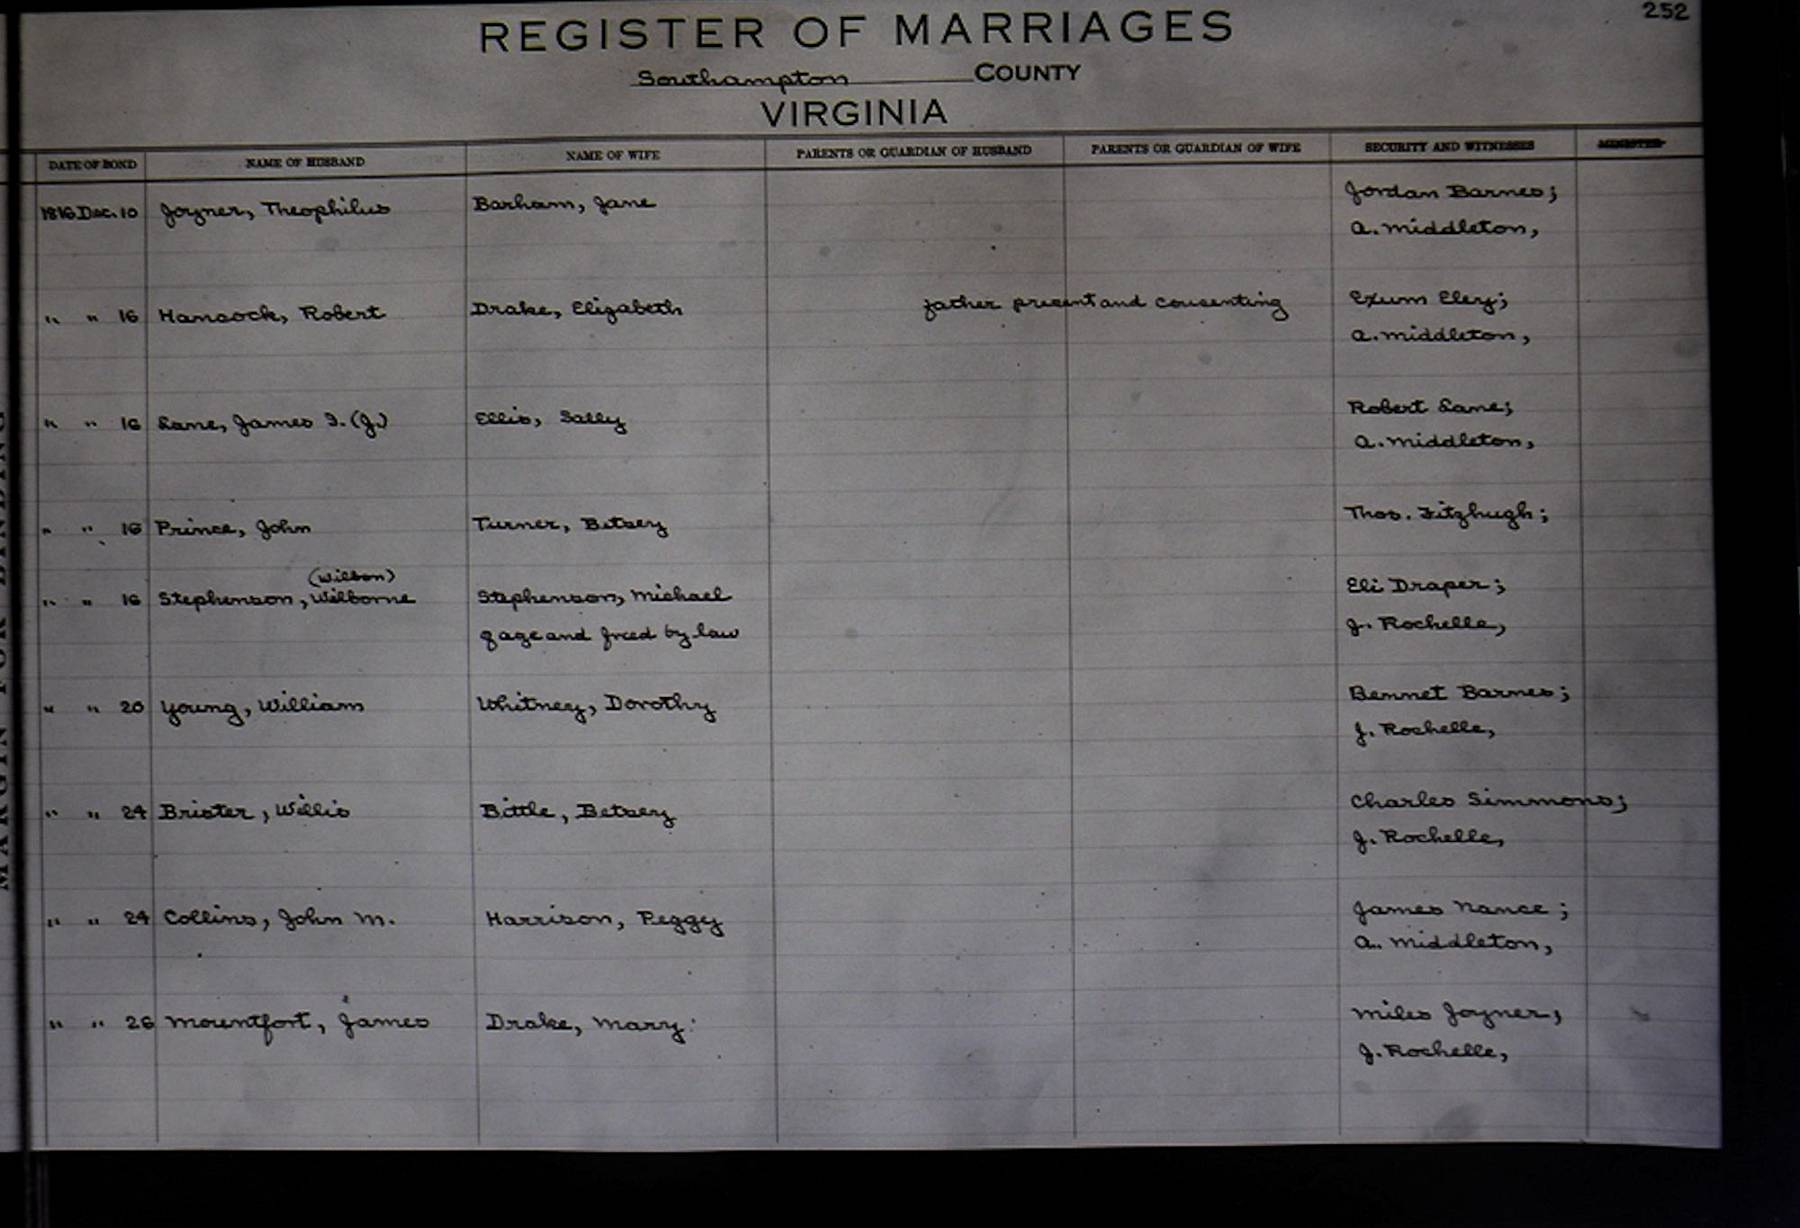 252
REGISTER OF MARRIAGES
Southampton COUNTY
VIRGINIA
DATE OF BOND NAME OF HUSBAND NAME OF WIFE PARENTS OR GUARDIAN OF HUSBAND PARENTS OR GUARDIAN OF WIFE SECURITY AND WITNESSES MINISTER
Jordan Barnes;
1816 Dec. 10 Joyner, Theophilus Barham, Jane
A. Middleton,
" " 16 Hancock, Robert Drake, Elizabeth father present and consenting Exum Eley;
A. Middleton,
Robert Lane;
" " 16 Lane, James I. (J.) Ellis, Sally
A. Middleton,
" " 16 Prince, John Turner, Betsey Thos. Fitzhugh;
(Wilson)
" " 16 Stephenson, Wilborne Stephenson, Michael Eli Draper;
of age and freed by law J. Rochelle,
" " 20 Young, William Whitney, Dorothy Bennet Barnes;
J. Rochelle,
" " 24 Brister, Willis Bittle, Betsey Charles Simmons;
J. Rochelle,
" " 24 Collins, John M. Harrison, Peggy James Nance;
A. Middleton,
" " 26 Mountfort, James Drake, Mary: Miles Joyner,
J. Rochelle,
MARGIN FOR BINDING